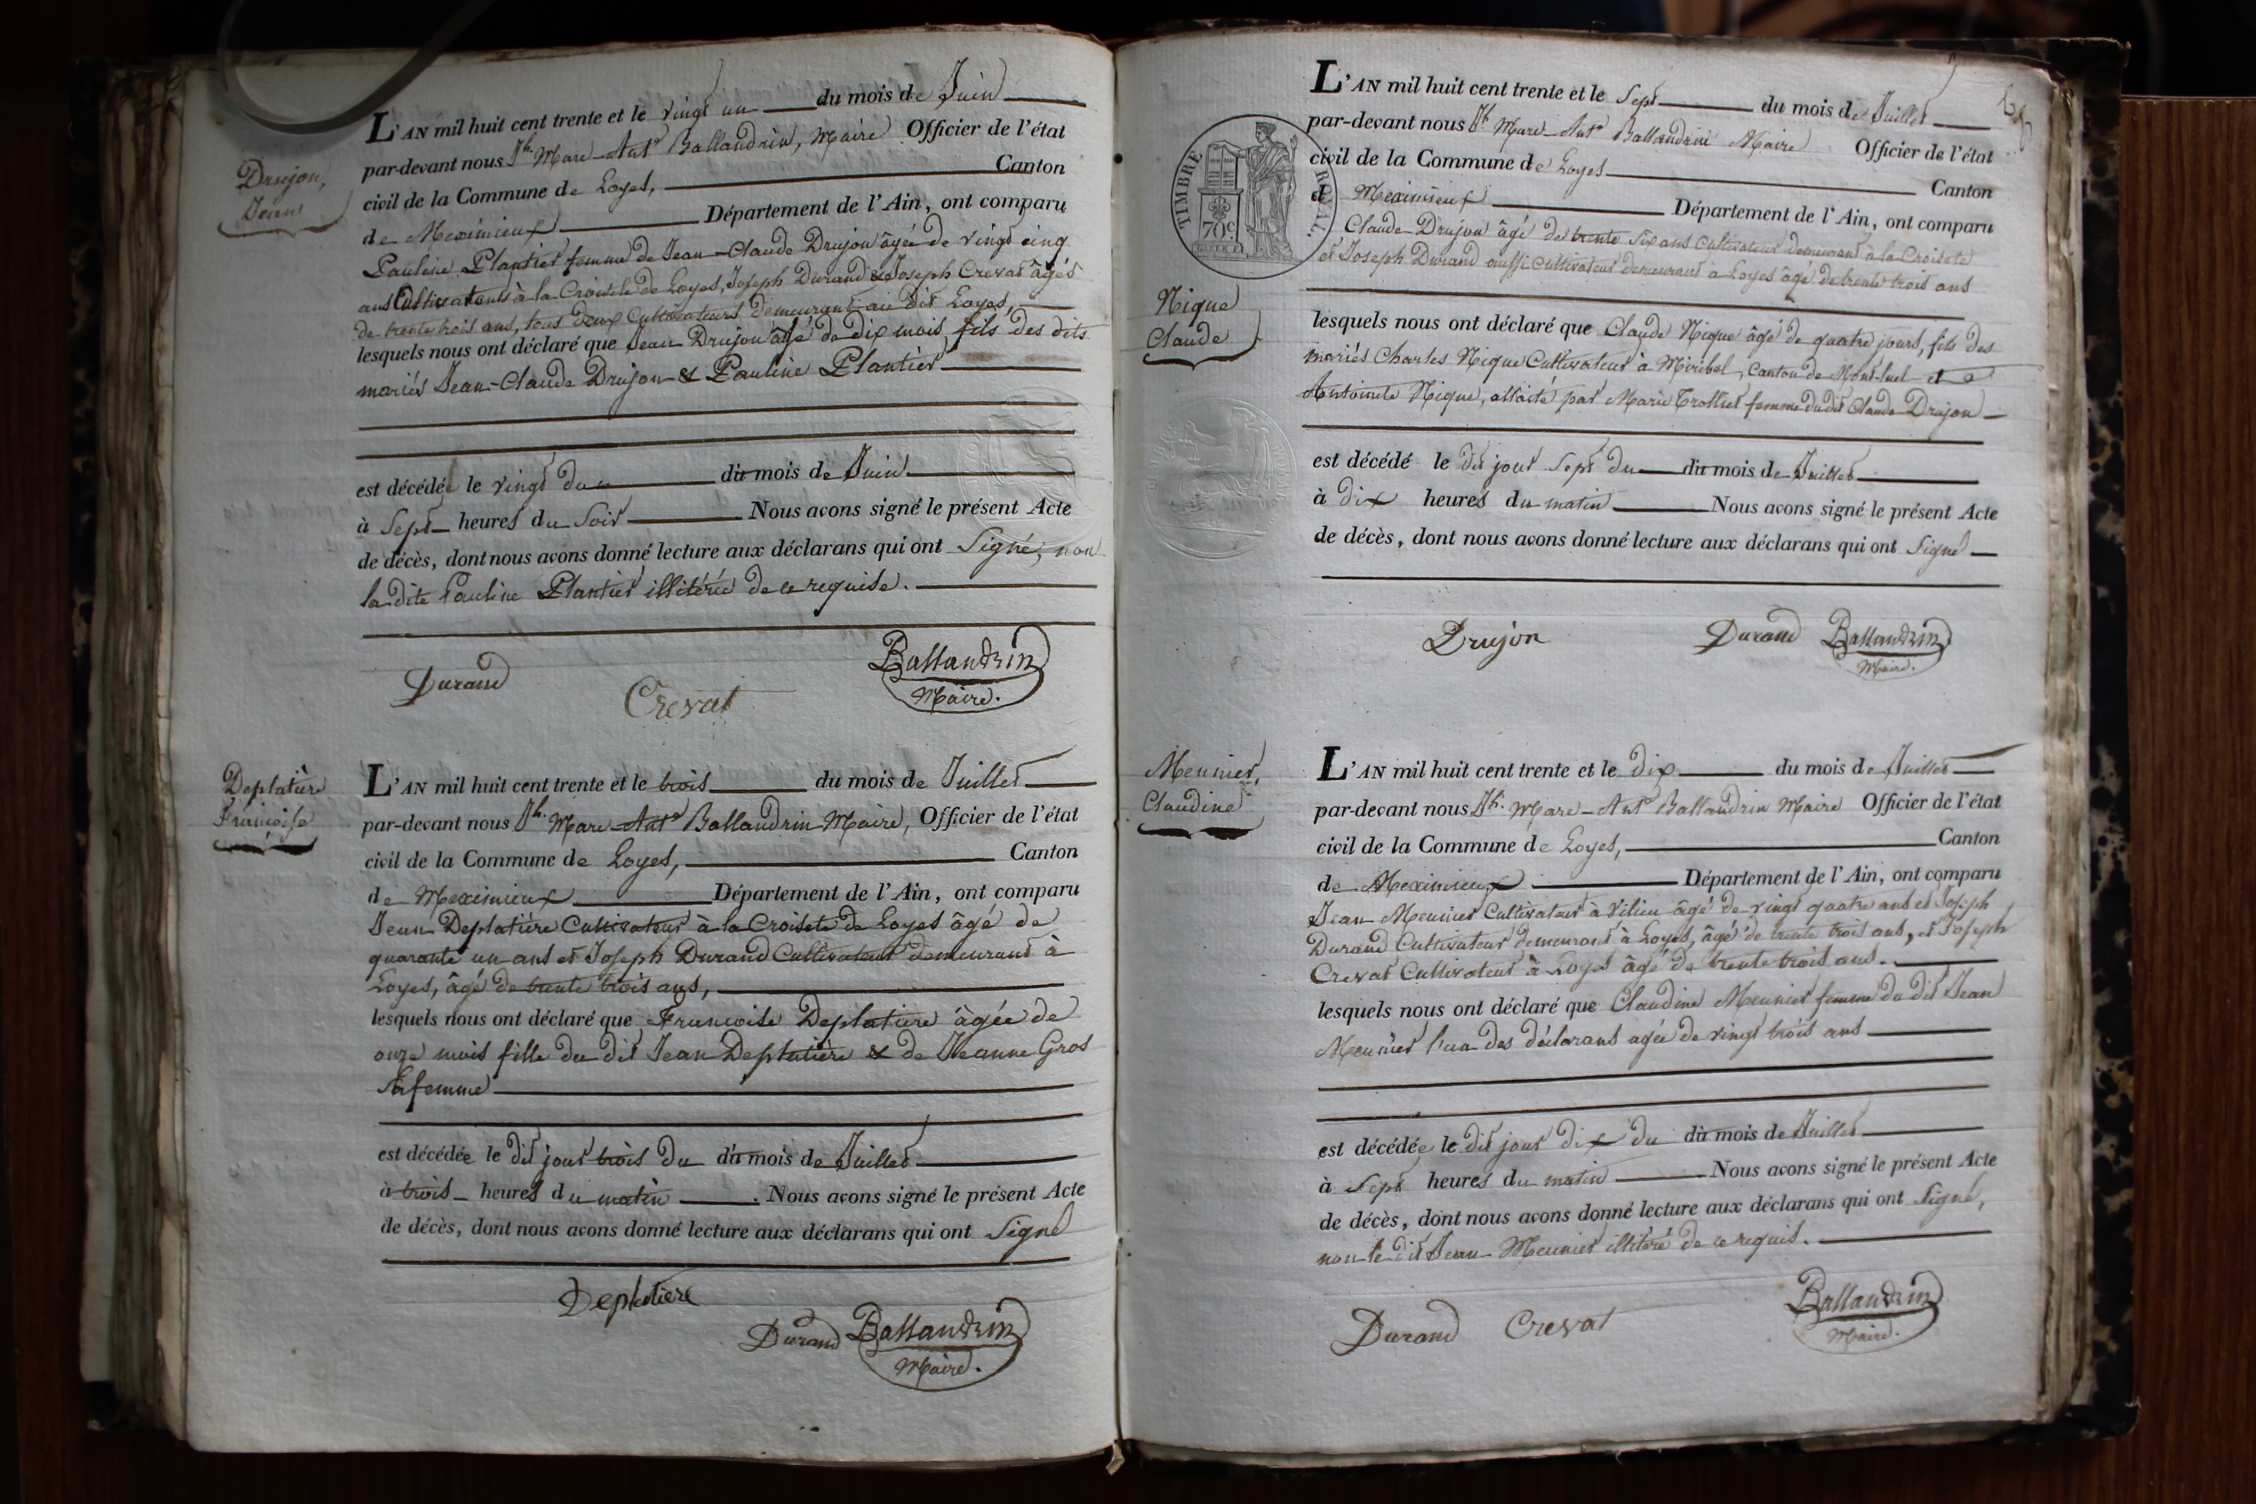 Drujon,
Jean
L'AN mil huit cent trente et le vingt un du mois de Juin
par-devant nous Jh. Marc-Ant.e Ballandrin, Maire Officier de l'état
civil de la Commune de Loyes, Canton
de Meximieux Département de l'Ain, ont comparu
Pauline Plantier femme de Jean-Claude Drujon âgée de vingt cinq
ans Cultivateurs à la Croisete de Loyes, Joseph Durand & Joseph Crevat âgés
de trente trois ans, tous deux Cultivateurs demeurant au dit Loyes,
lesquels nous ont déclaré que Jean Drujon âgé de dix mois fils des dits
mariés Jean-Claude Drujon & Pauline Plantier
est décédé le vingt du dit mois de Juin
à Sept heures du Soir Nous avons signé le présent Acte
de décès, dont nous avons donné lecture aux déclarans qui ont Signé, non
la dite Pauline Plantier illitérée de ce requise.
Durand
Crevat
Ballandrin
Maire.
Deplatière
Francoise
L'AN mil huit cent trente et le trois du mois de Juillet
par-devant nous Jh. Marc-Ant.e Ballandrin Maire, Officier de l'état
civil de la Commune de Loyes, Canton
de Meximieux Département de l'Ain, ont comparu
Jean Deplatière Cultivateur à la Croisete de Loyes âgé de
quarante un ans et Joseph Durand Cultivateur demeurant à
Loyes, âgé de trente trois ans,
lesquels nous ont déclaré que Francoise Deplatiere âgée de
onze mois fille du dit Jean Deplatière & de Jeanne Gros
Sa femme
est décédée le dit jour trois du dit mois de Juillet
à trois heures du matin . Nous avons signé le présent Acte
de décès, dont nous avons donné lecture aux déclarans qui ont Signé
Deplatiere
Durand
Ballandrin
Maire.
TIMBRE ROYAL.
70c
Nique
Claude
L'AN mil huit cent trente et le Sept du mois de Juillet
par-devant nous Jh. Marc-Ant.e Ballandrin Maire Officier de l'état
civil de la Commune de Loyes Canton
d Meximieux Département de l'Ain, ont comparu
Claude Drujon âgé de trente six ans Cultivateur demeurant à la Croisete
et Joseph Durand aussi Cultivateur demeurant à Loyes âgé de trente trois ans
lesquels nous ont déclaré que Claude Nique âgé de quatre jours, fils des
mariés Charles Nique Cultivateur à Miribel, Canton de Mont-luel et
Antoinete Nique, allaité par Marie Trolliet femme du dit Claude Drujon
est décédé le dit jour Sept du dit mois de Juillet
à dix heures du matin Nous avons signé le présent Acte
de décès, dont nous avons donné lecture aux déclarans qui ont Signé
Drujon
Durand
Ballandrin
Maire.
Meunier,
Claudine
L'AN mil huit cent trente et le dix du mois de Juillet
par-devant nous Jh. Marc-Ant.e Ballandrin Maire Officier de l'état
civil de la Commune de Loyes, Canton
de Meximieux Département de l'Ain, ont comparu
Jean Meunier Cultivateur à Vilieu âgé de vingt quatre ans et Joseph
Durand Cultivateur demeurant à Loyes, âgé de trente trois ans, et Joseph
Crevat Cultivateur à Loyes âgé de trente trois ans.
lesquels nous ont déclaré que Claudine Meunier femme du dit Jean
Meunier l'un des déclarans agée de vingt trois ans
est décédée le dit jour dix du dit mois de Juillet
à Sept heures du matin Nous avons signé le présent Acte
de décès, dont nous avons donné lecture aux déclarans qui ont Signé,
non le dit Jean Meunier illitéré de ce requis.
Durand
Crevat
Ballandrin
Maire.